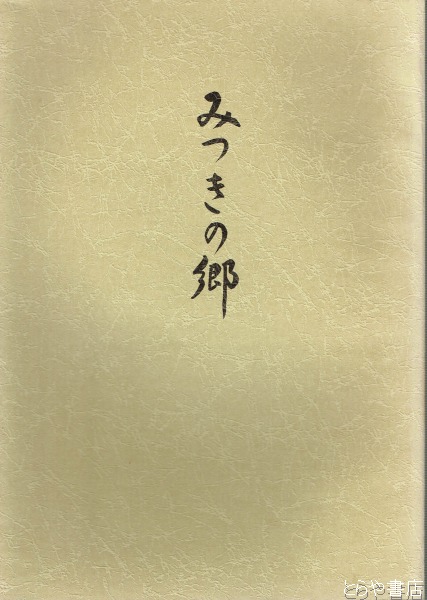 みつきの郷
とらや書店